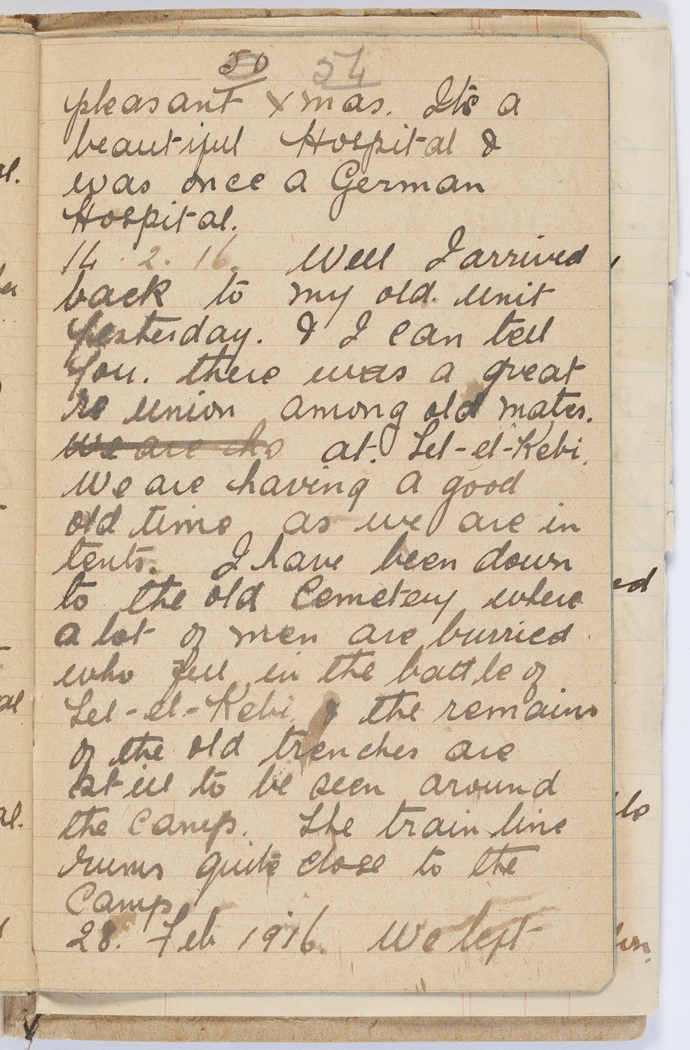 50 54
pleasant Xmas. Its a
beautiful Hospital &
was once a German
Hospital.
14. 2. 16. Well I arrived
back to my old unit
yesterday. & I can tell
you. there was a great
re union among old mates.
We are cho at. Tel-el-Kebi.
We are having a good
old time as we are in
tents. I have been down
to the old Cemetery where
a lot of men are burried
who fell in the battle of
Tel-el-Kebi & the remains
of the old trenches are
still to be seen around
the Camp. The train line
runs quite close to the
Camp.
28. Feb 1916. We left